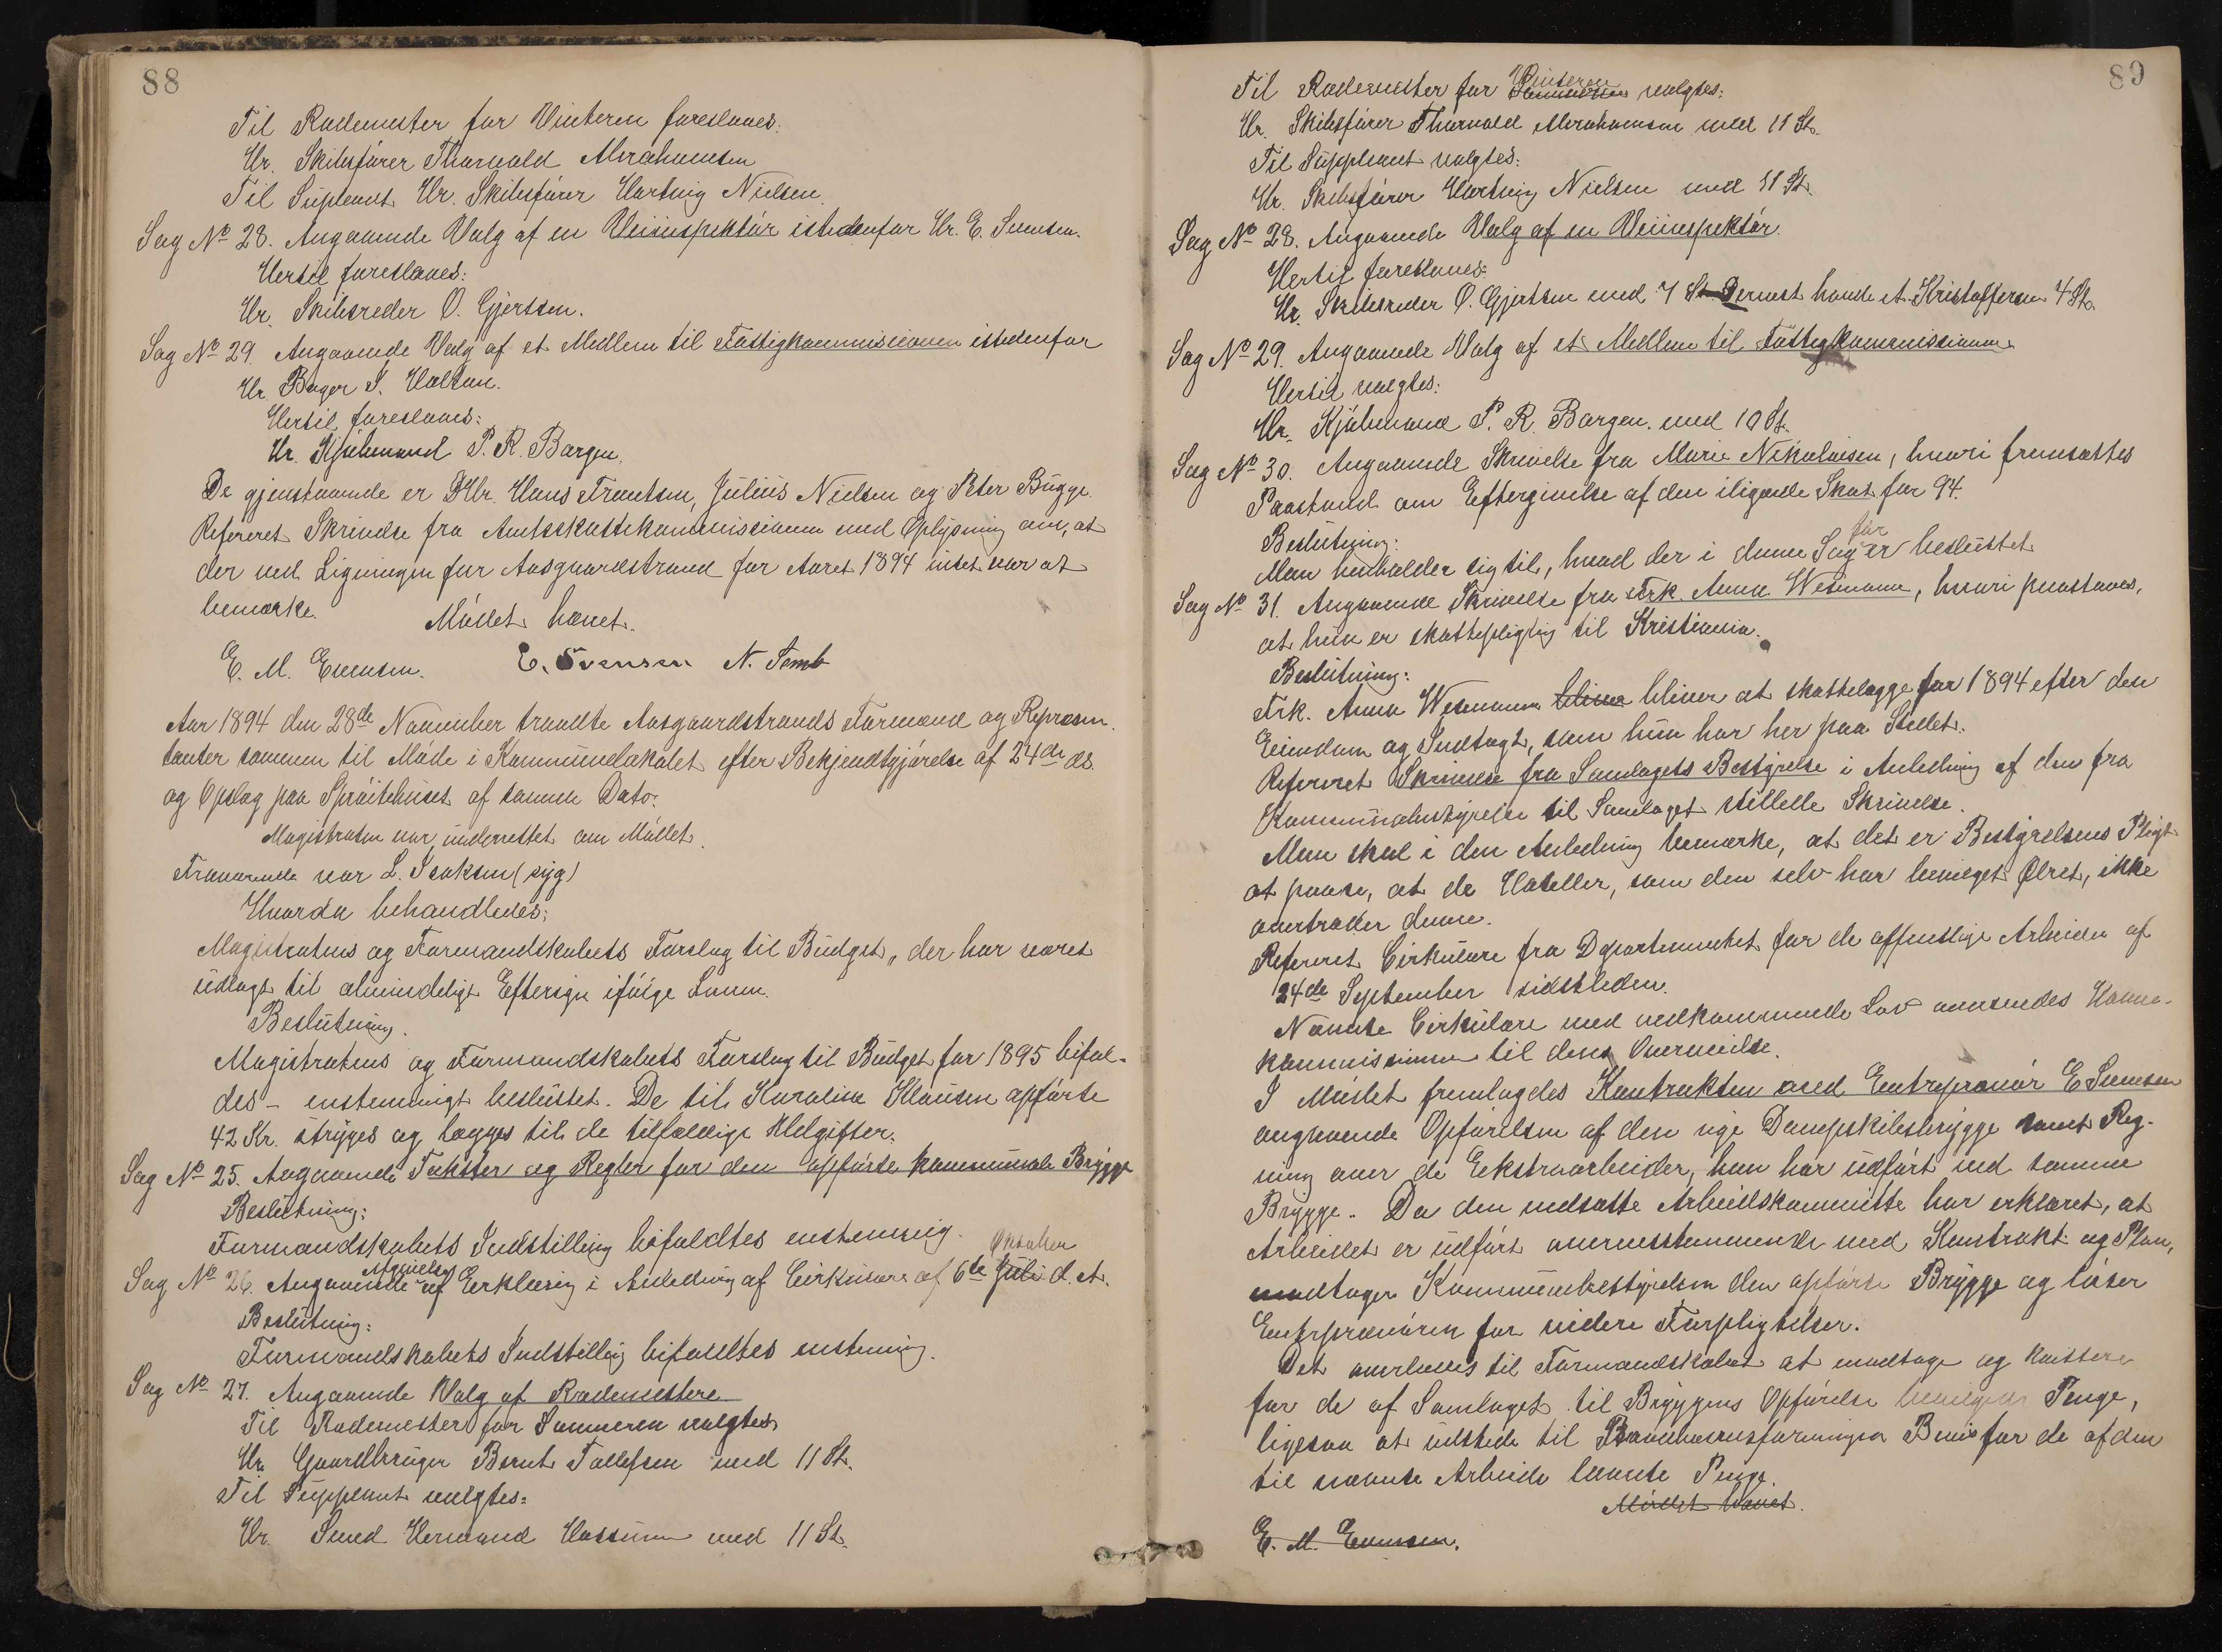 88
Til Rodemester for Vinteren foresloaes:
Hr. Skibsfører Thorvald Abrahamsen
Til Supleant Hr. Skibsfører Hartvig Nielsen.
Sag No 28. Angaaende Valg af en Veiinspektør istedenfor Hr. E. Svensen.
Hertil foresloaes:
Hr. Skibsreder O. Gjertsen.
Sag No 29. Angaaende Valg af et Medlem til Fattigkommissionen istedenfor
Hr. Bager S. Holtan.
Hertil foresloaes:
Hr. Kjøbmand P. R. Borgen.
De gjenstaaende er DHr. Hans Frantsen, Julius Nielsen og Peter Bugge.
Refereret Skrivelse fra Amtsskattekommissionen med Oplysning om, at
der ved Ligningen for Aasgaardstrand for Aaret 1894 intet var at
bemærke.
Mødet hævet.
E. M. Evensen. E. Svensen N. Semb
Aar 1894 den 28de November traadte Aasgaardstrands Formænd og Repræsen-
tanter sammen til Møde i Kommunelokalet efter Bekjendtgjørelse af 24de ds.
og Opslag paa Sprøitehuset af samme Dato.
Magistraten var underrettet om Mødet.
Fraværende var L. Isaksen (syg)
Hvorda behandledes:
Magistratens og Formandskabets Forslag til Budget, der har været
udlagt til almindeligt Eftersyn ifølge Loven.
Beslutning.
Magistratens og Formandskabets Forslag til Budget for 1895 bifal-
des - enstemmigt besluttet. De til Karoline Klausen opførte
42 Kr. stryges og lægges til de tilfældige Udgifter.
Sag No 25. Angaaende Takster og Regler for den opførte kommunale Brygge
Beslutning:
Formandskabets Indstilling bifaldtes enstemmig.
Sag No 26. Angaaende Afgivelse af Erklæring i Anledning af Cirkulære af 6te Juli Oktober d. A.
Beslutning:
Formandskabets Indstilling bifaldtes enstemmig.
Sag No 27. Angaaende Valg af Rodemestere
Til Rodemester for Sommeren valgtes
Hr. Gaardbruger Bernt Tollefsen med 11 St.
Til Suppleant valgtes:
Hr. Smed Hermand Hassum med 11 St.
89
Til Rodemester for Sommeren Vinteren valgtes:
Hr. Skibsfører Thorvald Abrahamsen med 11 St.
Til Suppleant valgtes:
Hr. Skibsfører Hartvig Nielsen med 11 St.
Sag No 28. Angaaende Valg af en Veiinspektør.
Hertil foresloaes:
Hr. Skibsreder O. Gjertsen med 7 St. Dernest havde A. Kristoffersen 4 St.
Sag No 29. Angaaende Valg af et Medlem til Fattigkommissionen
Hertil valgtes:
Hr. Kjøbmand P. R. Borgen. med 10 St.
Sag No 30. Angaaende Skrivelse fra Marie Nikolaisen, hvori fremsættes
Paastand om Eftergivelse af den ilignede Skat for 94.
Beslutning:
Man henholder sig til, hvad der i denne Sag før er besluttet.
Sag No 31. Angaaende Skrivelse fra Frk. Anna Wesmann, hvori paastaaes,
at hun er skattepligtig til Kristiania.
Beslutning:
Frk. Anna Wesmann bliver bliver at skattelægge for 1894 efter den
Eiendom og Indtægt, som hun har her paa Stedet.
Refereret Skrivelse fra Samlagets Bestyrelse i Anledning af den fra
Kommunebestyrelse til Samlaget stillede Skrivelse.
Man skal i den Anledning bemærke, at det er Bestyrelsens Pligt
at paase, at de Hoteller, som den selv har bevilget Ølret, ikke
overtræder denne.
Refereret Cirkulære fra Departementet for de offentlige Arbeider af
24de September sidstleden.
Nævnte Cirkulære med vedkommende Lov oversendes Havne-
kommissionen til dens Overveielse.
I Mødet fremlagdes Kontrakten med Entreprenør E. Svensen
angaaende Opførelsen af den nye Dampskibsbrygge samt Reg-
ning over de Ekstraarbeider, han har udført ved samme
Brygge. Da den nedsatte Arbeidskommitte har erklæret, at
Arbeidet er udført overensstemmende med Kontrakt og Plan,
modtager Kommunebestyrelsen den opførte Brygge og løser
Entreprenøren for videre Forpligtelser.
Det overlades til Formandskabet at modtage og kvittere
for de af Samlaget til Bryggens Opførelse bevilgede Penge,
ligesaa at udstede til Brændevinsforeningen Bevis for de af den
til nævnte Arbeide laante Penge.
Mødet hævet.
E. M. Evensen.